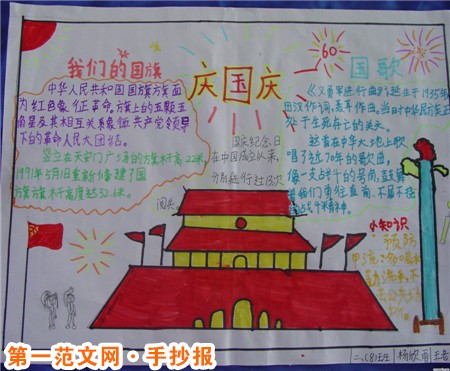 我们的国旗
中华人民共和国国旗旗面
为红色象征革命。旗上的五颗五
角星及其相互关系象征共产党领导
下的革命人民大团结。
竖立在天安门广场的旗杆高22米
1991年5月1日重新修建了国
旗旗杆高度达32.6米。
庆国庆
国庆纪念日
在中国成立以来,
60
国歌
《义勇军进行曲》诞生于1935年
田汉作词,聂耳作曲。当时中华民族正
处于生死存亡的关头。
这首在中华大地上歌
唱了近70年的歌曲。
像一支战斗的号角,鼓舞
着我们勇往直前、不屈不挠
小知识
预防
二、(8)班
杨欣雨
第一范文网·手抄报